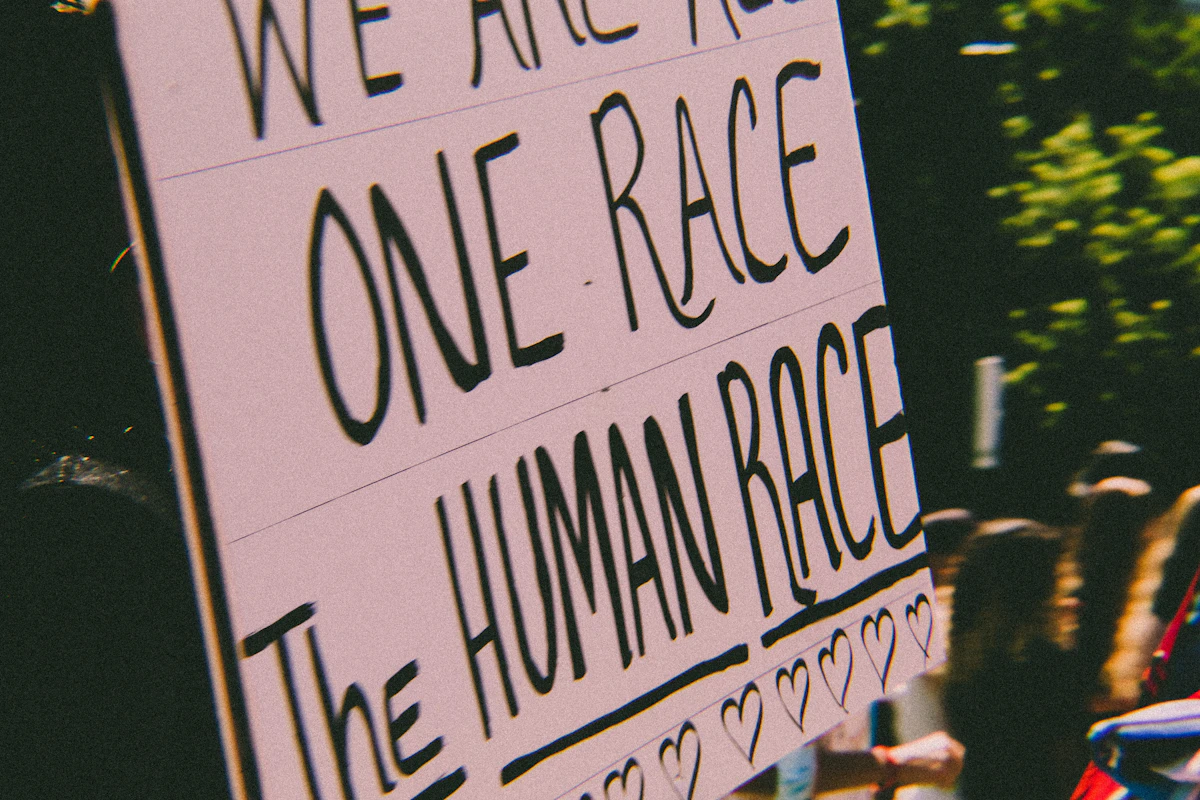 WE ARE ALL
ONE RACE
The HUMAN RACE